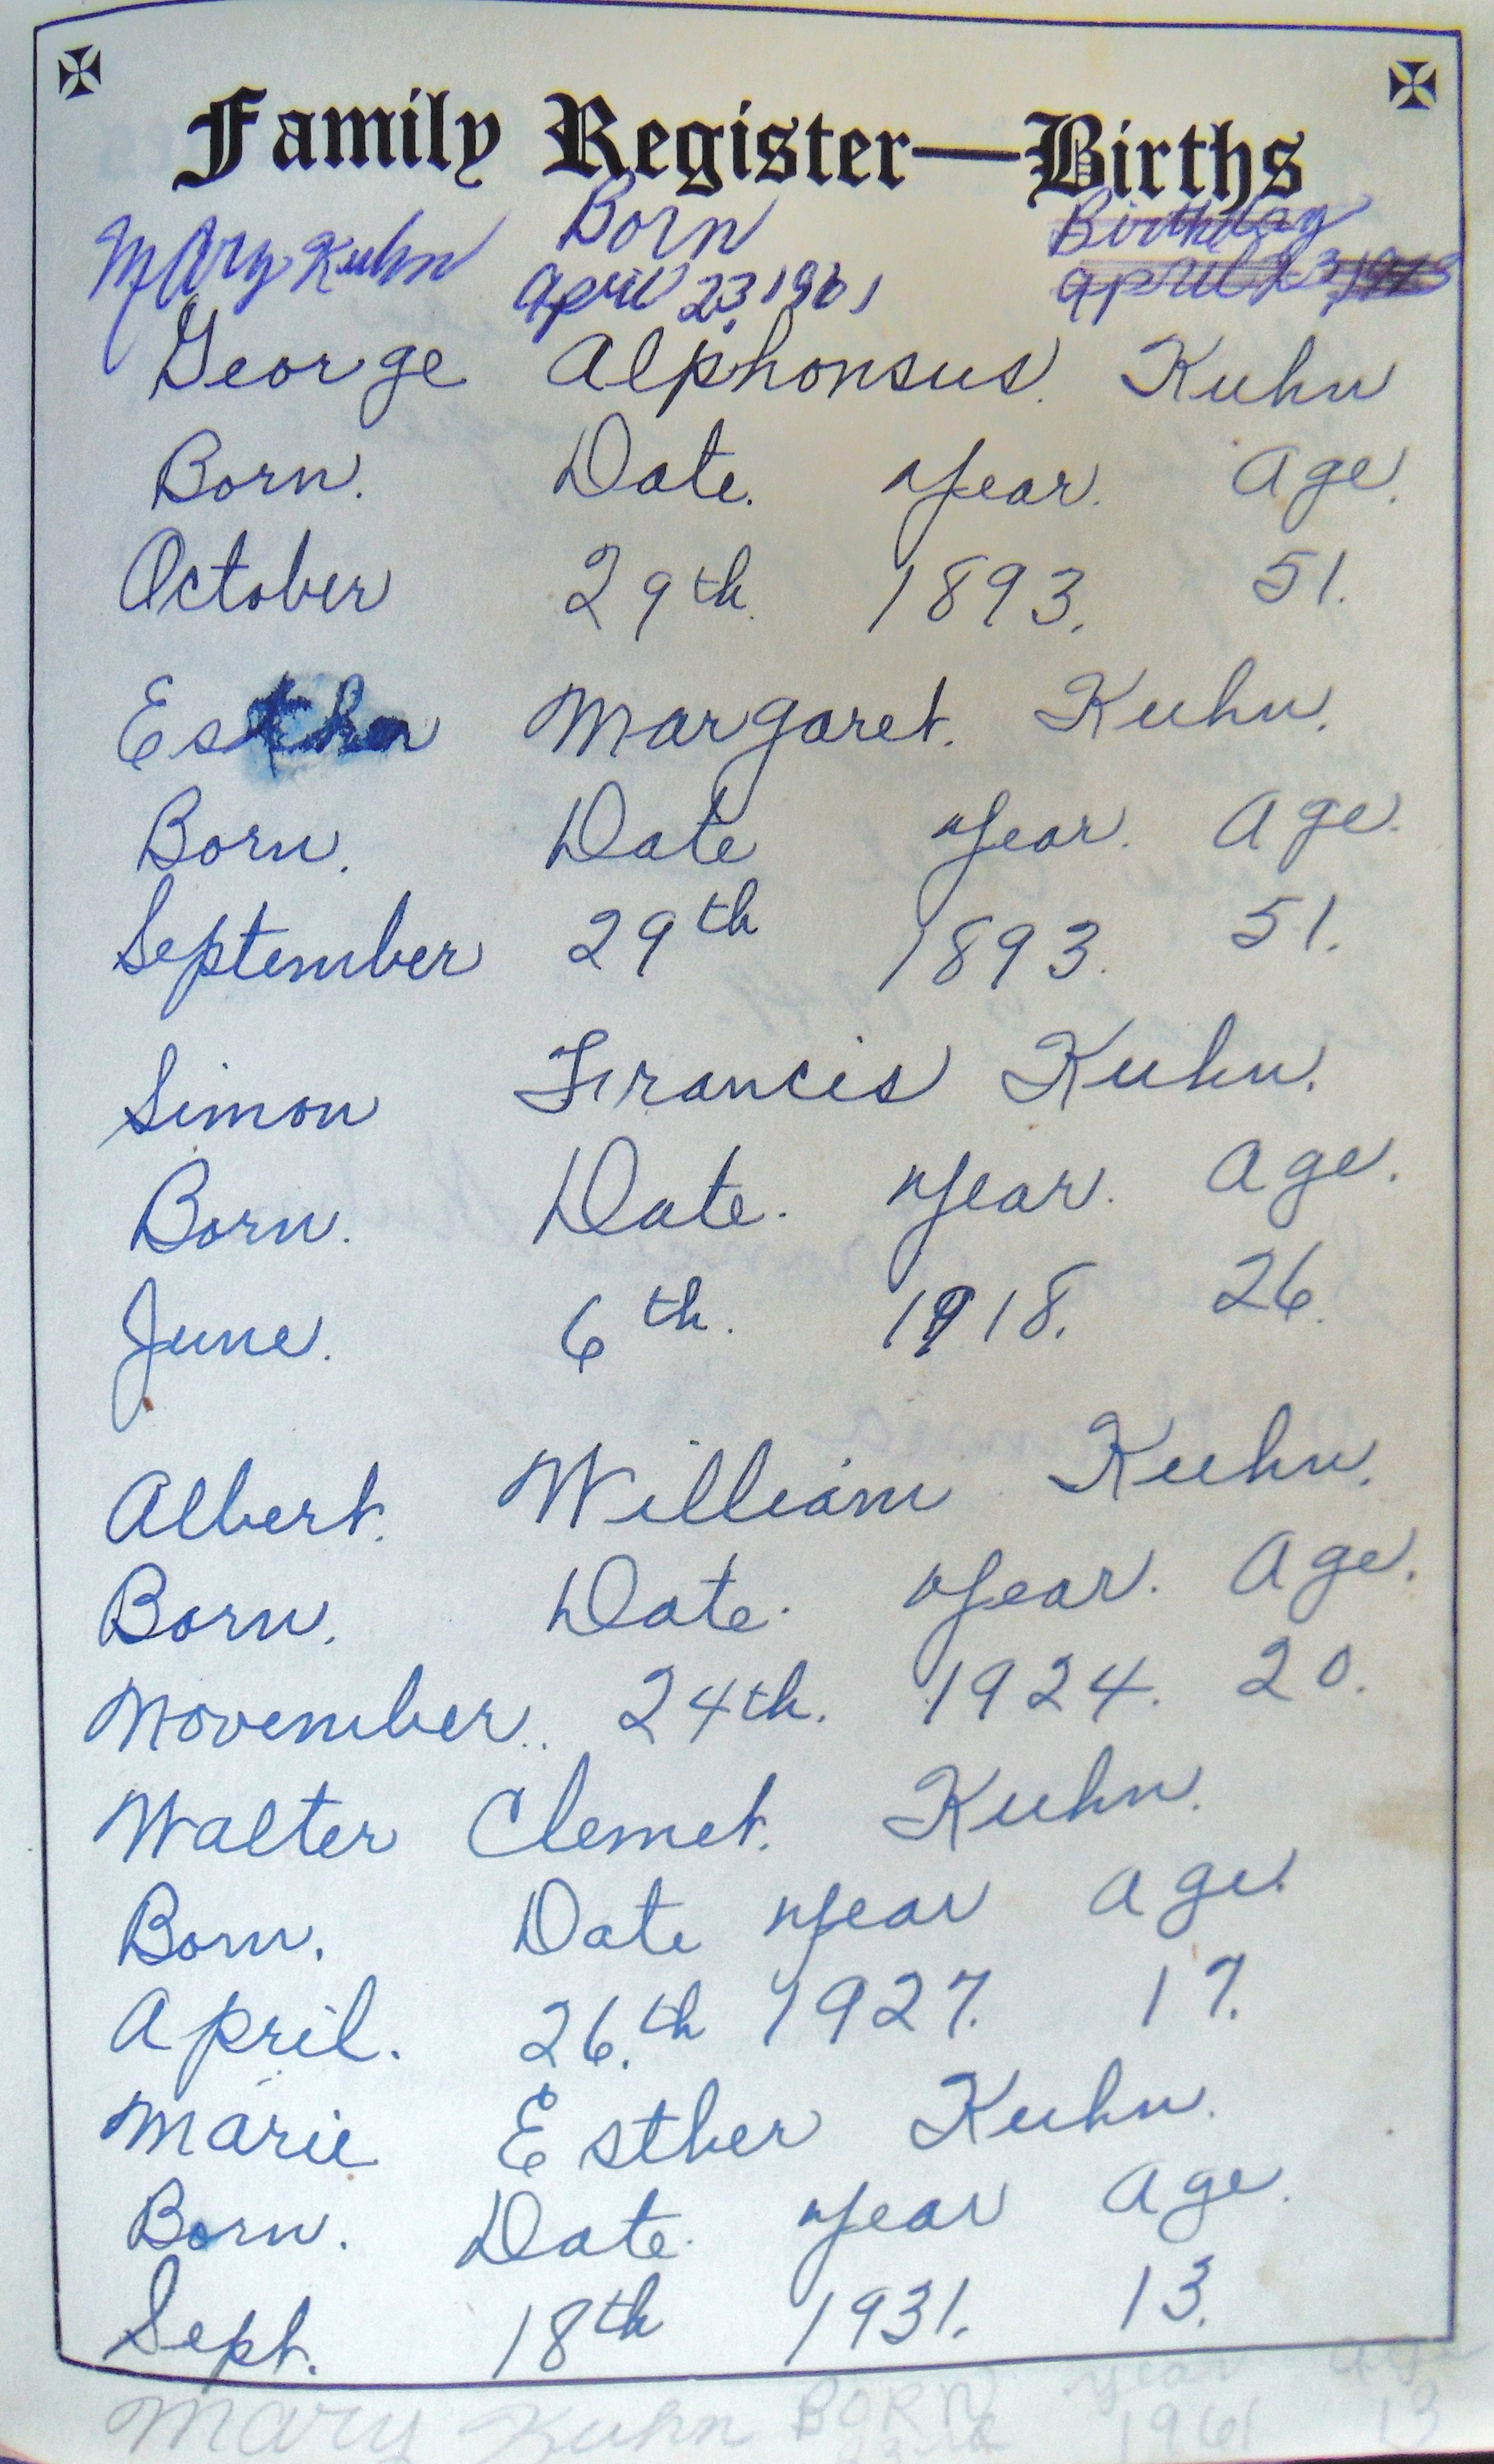 Family Register—Births
Mary Kuhn Born Birthday
April 23, 1961 April 23, 
George Alphonsus Kuhn
Born. Date. Year. Age.
October 29th. 1893. 51.
Esther Margaret. Kuhn.
Born. Date Year. Age.
September 29th 1893. 51.
Simon Francis Kuhn.
Born. Date. Year. Age.
June. 6th. 1918. 26.
Albert. William Kuhn.
Born. Date. Year. Age.
November. 24th. 1924. 20.
Walter Clemet. Kuhn.
Born. Date Year Age.
April. 26.th 1927. 17.
Marie Esther Kuhn.
Born. Date. Year Age.
Sept. 18th 1931. 13.
Mary Kuhn BORN year age
1961 13